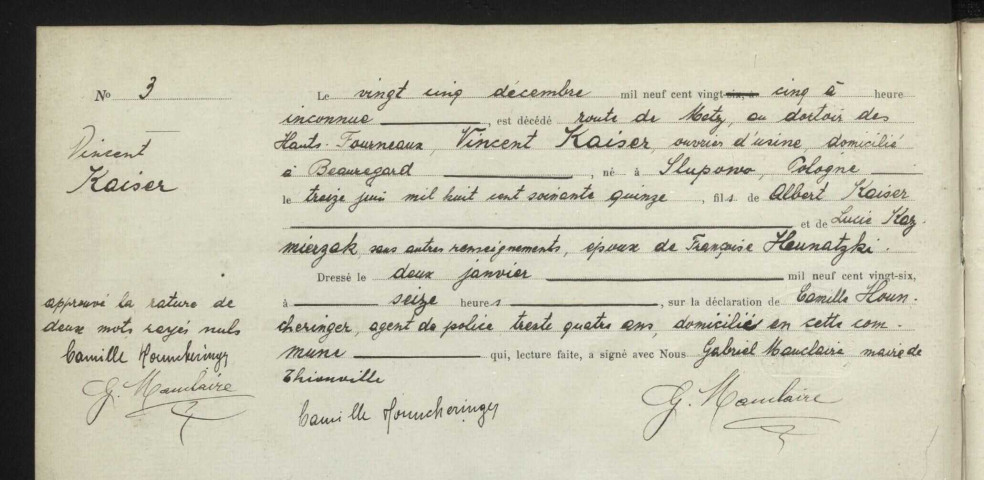 No 3
Vincent
Kaiser
Le vingt cinq décembre mil neuf cent vingt-six, à cinq à heure
inconnue, est décédé route de Metz, au dortoir des
Hauts-Fourneaux, Vincent Kaiser, ouvrier d'usine, domicilié
à Beauregard, né à Slupowo, Pologne
le treize juin mil huit cent soixante quinze, fils de Albert Kaiser
et de Lucie Kaz-
mierzak, sans autres renseignements, époux de Françoise Hounatzki.
Dressé le deux janvier mil neuf cent vingt-six,
à seize heures, sur la déclaration de Camille Houn-
cheringer, agent de police, trente quatre ans, domicilié en cette com-
mune qui, lecture faite, a signé avec Nous Gabriel Mauclaire maire de
Thionville
approuvé la rature de
deux mots rayés nuls
Camille Houncheringer
G. Mauclaire
Camille Houncheringer
G. Mauclaire